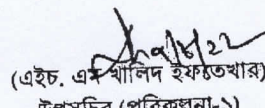 (এইচ. এম খালিদ ইফতেখার)
উপসচিব (পরিকল্পনা-১)